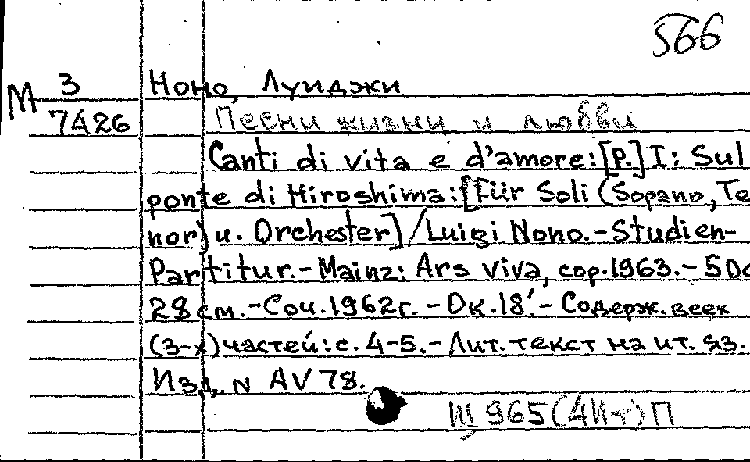 566
М 3 Ноно, Луиджи
7426 Песни жизни и любви
Canti di vita e d'amore: [P.] I: Sul
ponte di Hiroshima: [Für Soli (Sopano, Te
nor) u. Orchester] / Luigi Nono. - Studien-
Partitur. - Mainz: Ars viva, cop. 1963. - 50c
28 см. - Соч. 1962 г. - Ок. 18'. - Содерж. всех
(3-х) частей: с. 4-5. - Лит. текст на ит. яз.
Изд. N AV 78.
Щ 965 (4И-т) П